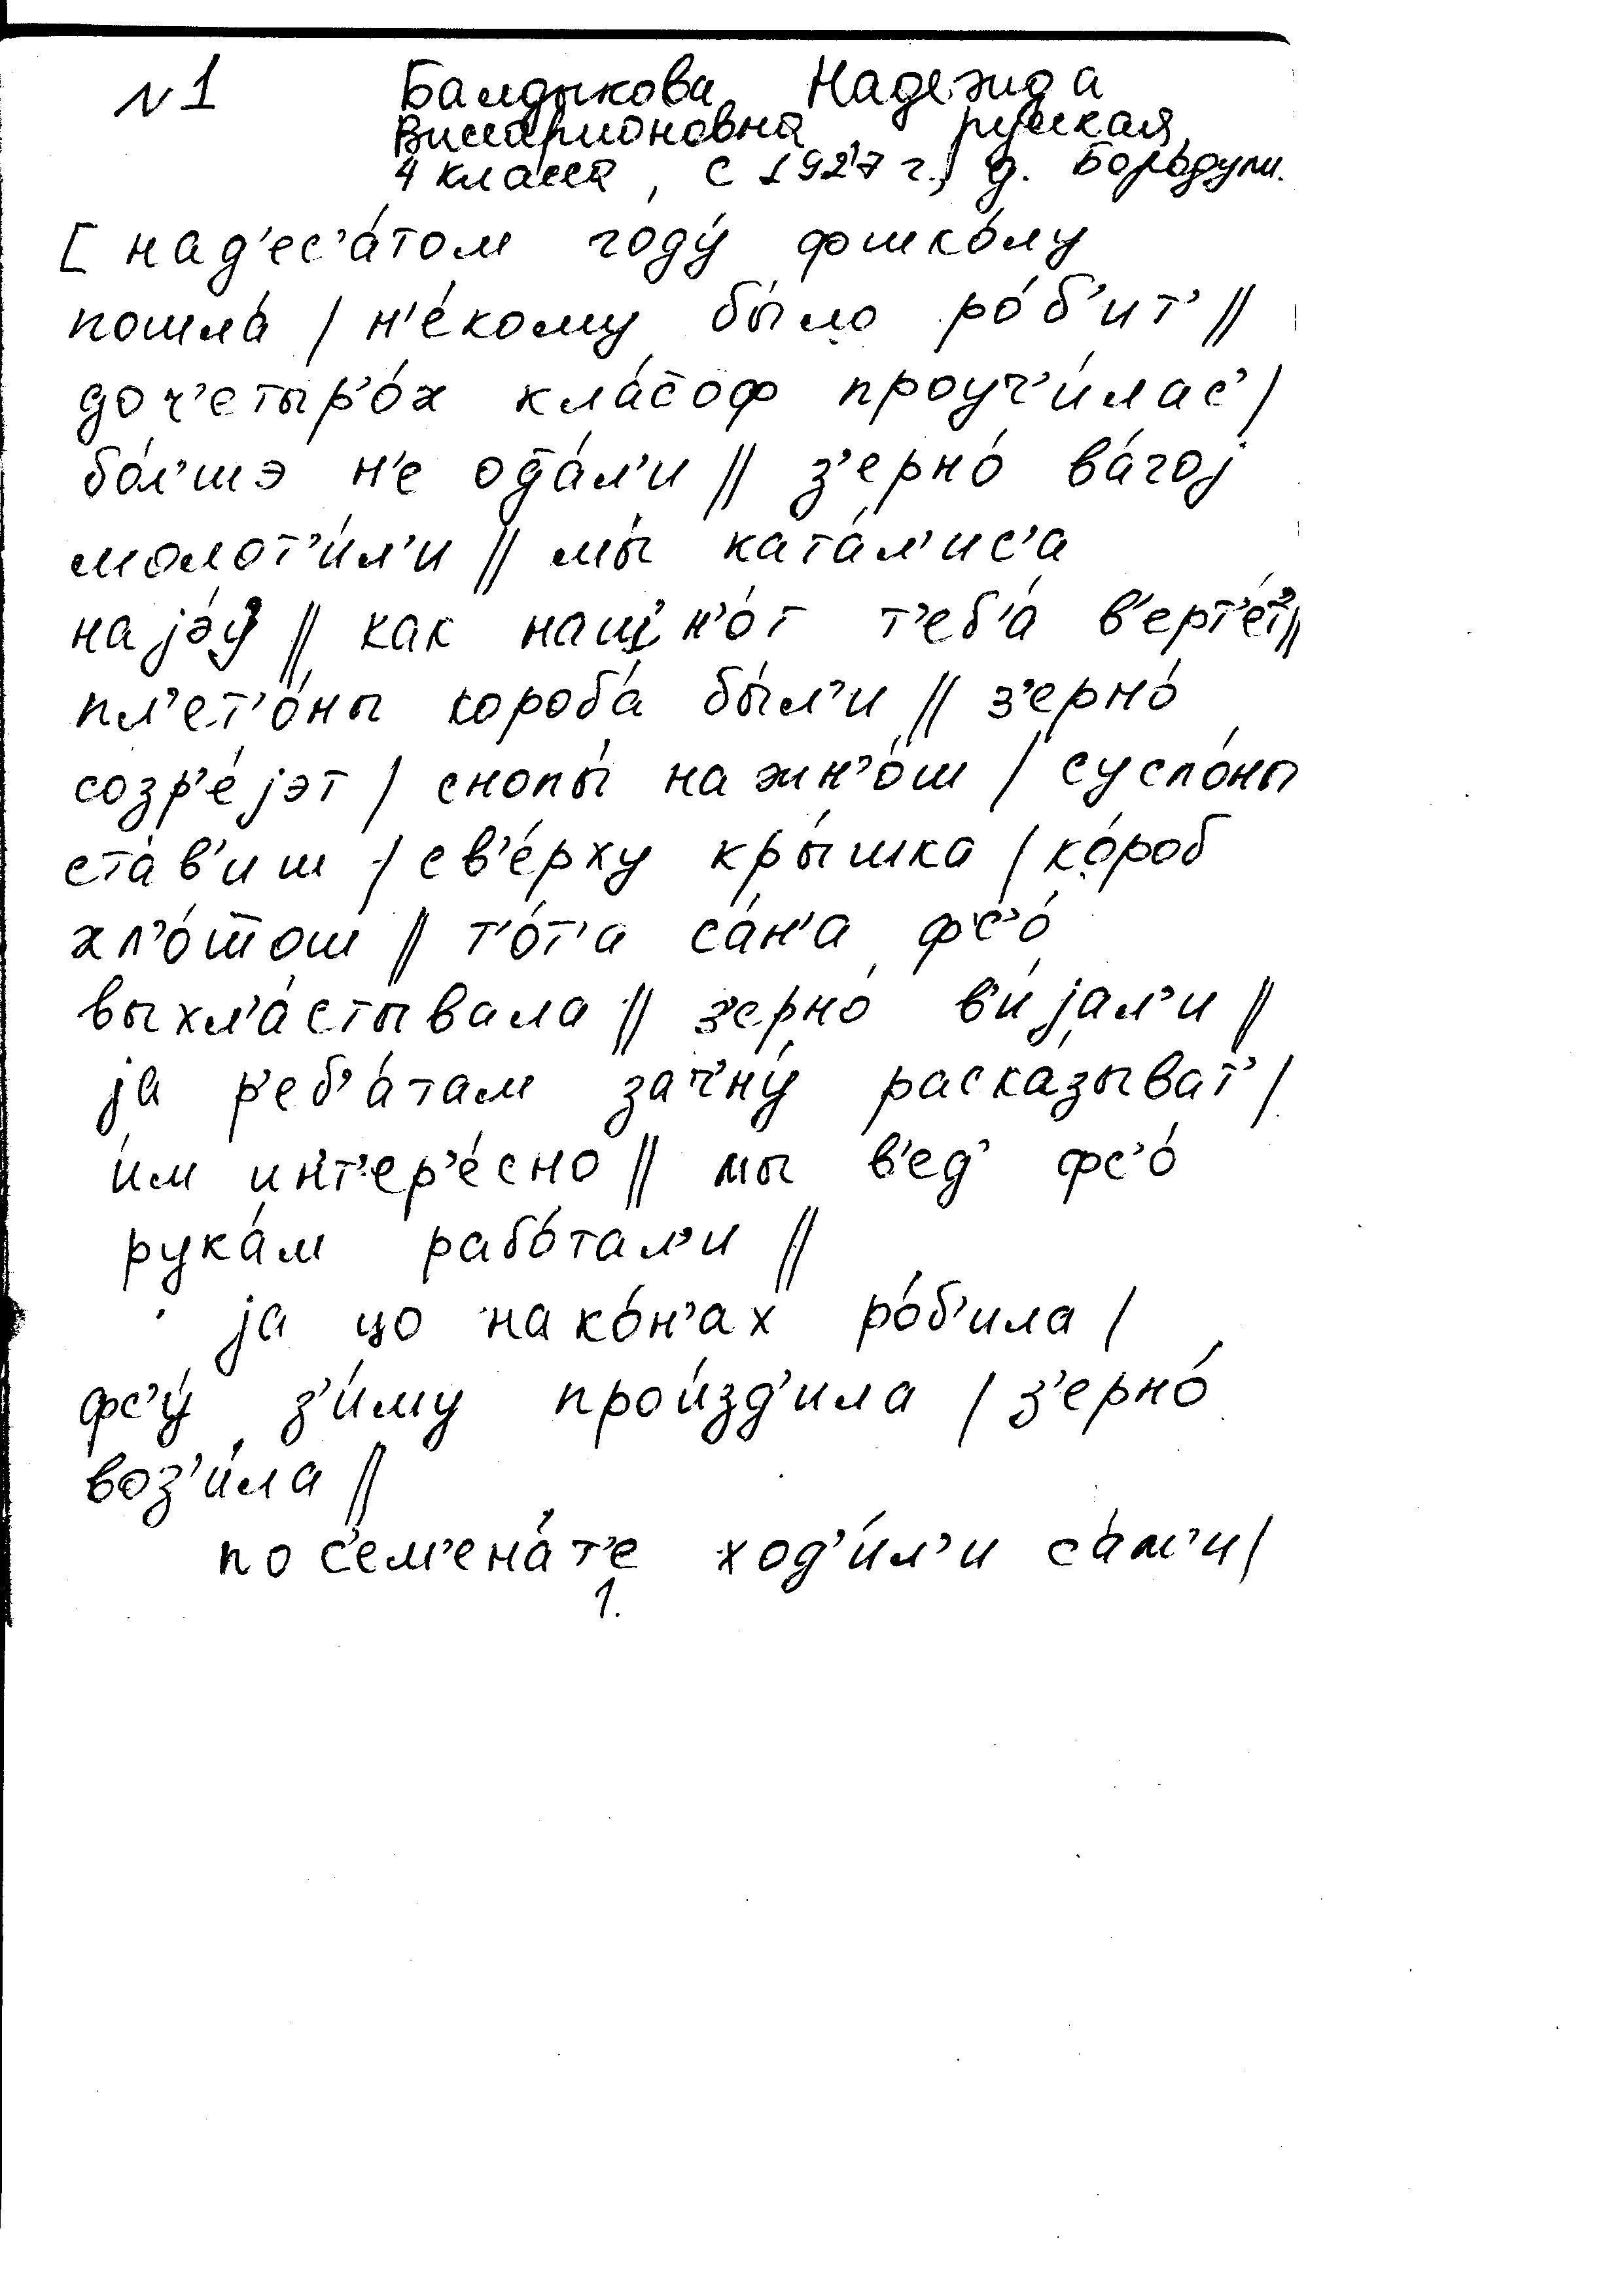 N1 Балдыкова Надежда
Виссарионовна русская
4 класса, с 1927 г., д. Бородули.
[ над'ес'а́том году́ фшко́лу
пошла́ / н'е́кому бы́ло ро́б'ит' //
доч'етыр'о́х кла́с̄оф проуч'и́лас' /
бо́л'шэ н'е од̄а́л'и // з'ерно́ ва́гој
молот'и́л'и // мы́ ката́л'ис'а
как н'о́т т'еб'а́ в'ерт'е́т' //
пл'ет'о́ны короба́ бы́л'и // з'ерно́
созр'е́јэт / снопы́ нажн'о́ш / суспо́ны
ста́в'иш / св'е́рху кры́шка / ко́роб
хл'о́ш̄ош // т'о́т'а са́н'а фс'о́
выхл'а́стывала // з'ерно́ в'и́јал'и //
ја р'еб'а́там зач'ну́ раска́зыват' /
и́м инт'ер'е́сно // мы в'ед' фс'о́
рука́м рабо́тал'и //
ја цо нако́н'ах ро́б'ила /
фс'у́ з'и́му прои́зд'ила / з'ерно́
воз'и́ла //
пос'ем'ена́т'е ход'и́л'и са́м'и /
1.